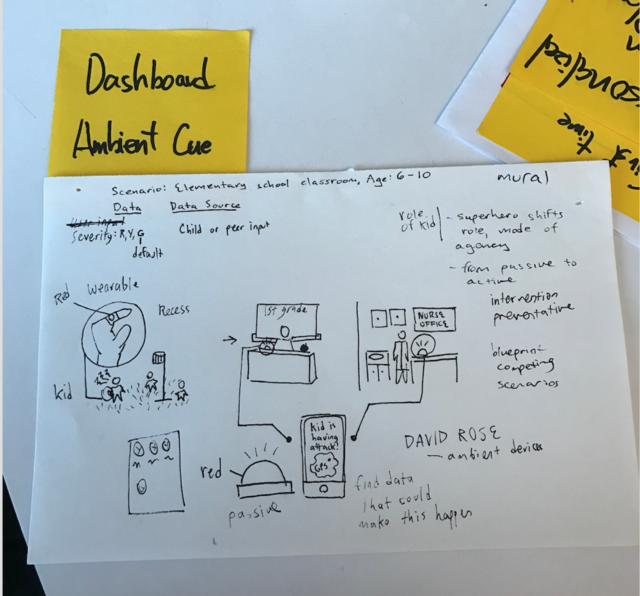 Dashboard
Ambient Cue
Scenario: Elementary school classroom, Age: 6-10
mural
Data
Data Source
Severity: R, Y, G
default
Child or peer input
role
of kid
- superhero shifts
role, mode of
agency
- from passive to
active
intervention
preventative
blueprint
competing
scenarios
Red
wearable
Recess
kid
1st grade
NURSE
OFFICE
Kid is
having
attack!
GPS
red
passive
DAVID ROSE
- ambient devices
find data
that could
make this happen
time